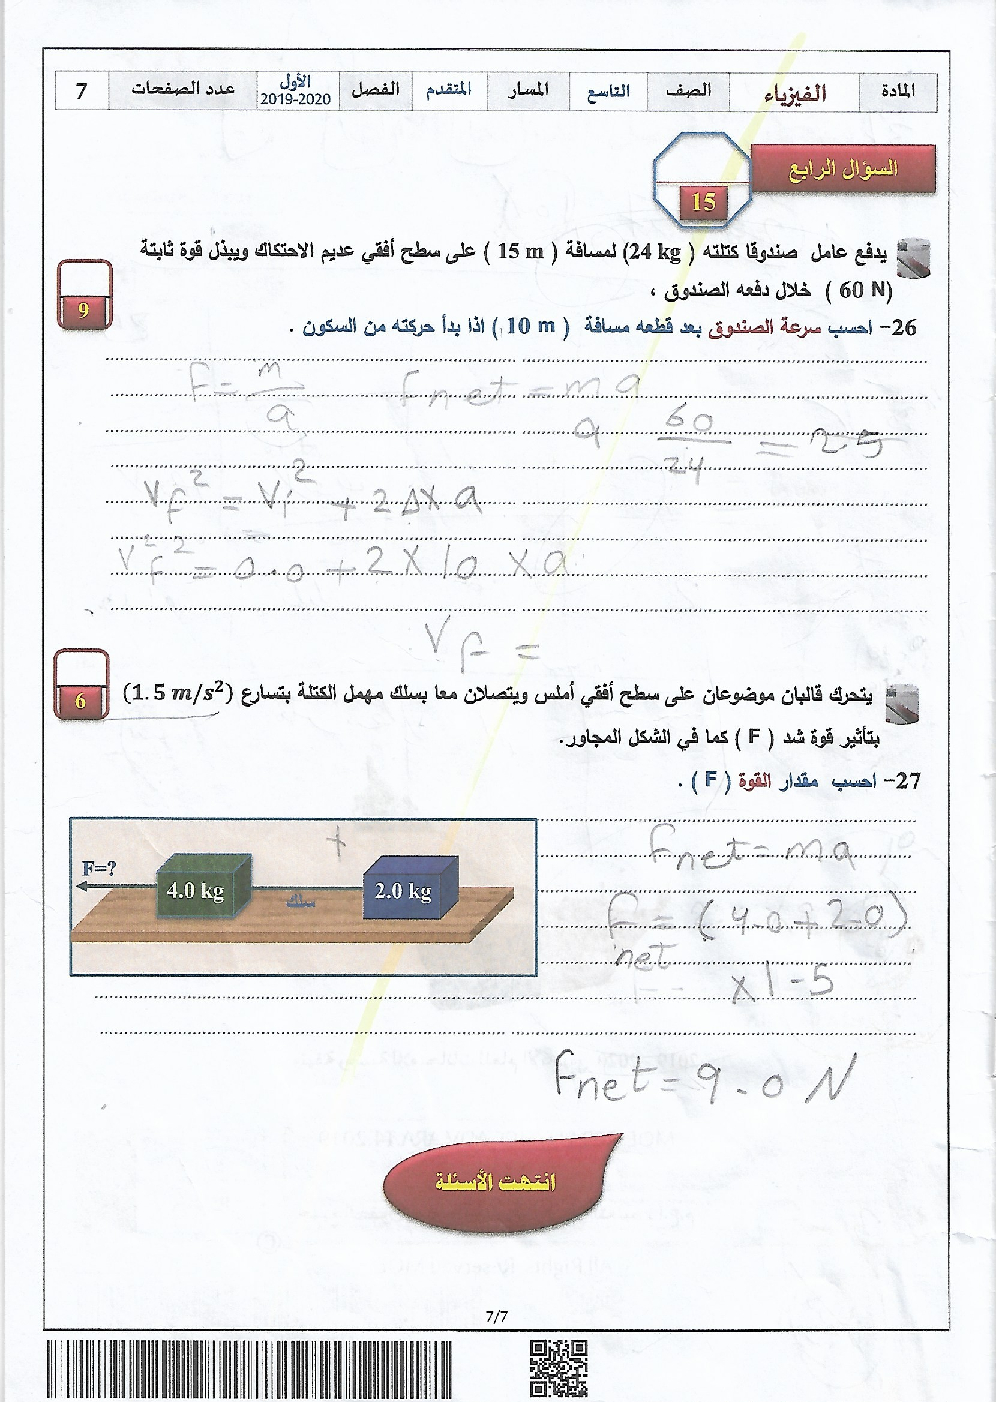 المادة الفيزياء الصف التاسع المسار المتقدم الفصل الأول 2019-2020 عدد الصفحات 7
السؤال الرابع
15
يدفع عامل صندوقا كتلته ( 24 kg) لمسافة ( 15 m ) على سطح أفقي عديم الاحتكاك ويبذل قوة ثابتة
( 60 N) خلال دفعه الصندوق ،
9
26- احسب سرعة الصندوق بعد قطعه مسافة ( 10 m ) اذا بدأ حركته من السكون .
F = m/a Fnet = ma
a 60/24 = 25
Vf² = Vi² + 2 Δx a
Vf² = 0.0 + 2 × 10 × a
Vf =
6
يتحرك قالبان موضوعان على سطح أفقي أملس ويتصلان معا بسلك مهمل الكتلة بتسارع (1.5 m/s²)
بتأثير قوة شد ( F ) كما في الشكل المجاور.
27- احسب مقدار القوة ( F ) .
F=?
4.0 kg
سلك
2.0 kg
+
Fnet = ma
Fnet = (4.0 + 2.0)
× 1.5
Fnet = 9.0 N
انتهت الأسئلة
7/7